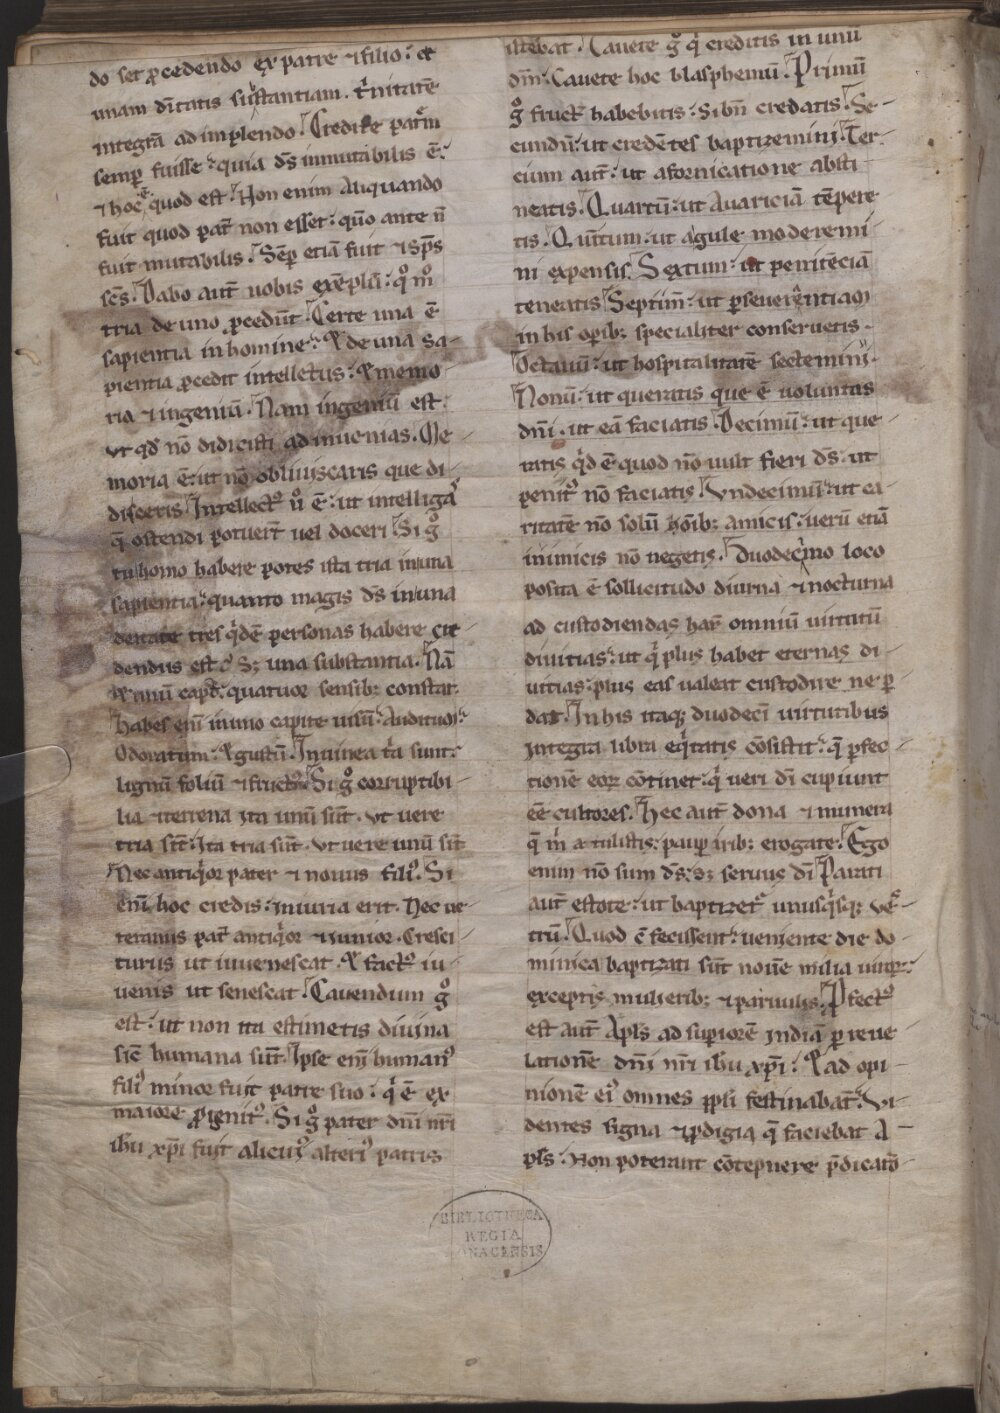 do set ꝓcedendo ex patre ⁊ filio. et
unam dītatis substantiam. t̾nitatē
integrā ad implendo. Credite patrē
semꝑ fuisse. quia d̄s inmutabilis ē.
⁊ hoc ē quod est. Non enim aliquando
fuit quod pat̾ non esset. qūo ante n̄
fuit mutabilis. Sēꝑ etiā fuit ⁊ sp̄s
sc̄s. Dabo aut̄ uobis exēplū. qͦ mͦ
tria de uno ꝓcedūt. Certe una ē
sapientia in homine. ⁊ de una sa-
pientia ꝓcedit intellectus. ⁊ memo
ria ⁊ ingeniū. Nam ingeniū est.
ut qd̄ nō didicisti ad inuenias. Me
moria ē. ut nō obliuiscaris que di-
disceris. Intellectꝰ ů ē. ut intelligas
q̄ ostendi potuer̄t uel doceri. Si gͦ
tu homo habere potes ista tria in una
sapientia. quanto magis d̄s in una
deitate tres qͥdē personas habere cre
dendus est. sꝫ una substantia. Nā
⁊ unū capd̄. quatuor sensibꝫ constat.
habes enī in uno capite uisū. Auditum.
Odoratum. ⁊ gustū. In uinea tͥa sunt.
lignū foliū ⁊ fructꝰ. Si gͦ corruptibi-
lia ⁊ terrena ita unū sūt. ut uere
tria sīt. Ita tria sūt. ut uere unū sīt
Nec antiqͥor pater ⁊ nouus filiꝰ. Si
enī hoc credis. iniuria erit. Nec ue-
teranus pat̾ antiqͥor ⁊ iunior. Cresci
turus ut iuuenescat. ⁊ factꝰ iu-
uenis ut senescat. Cauendum gͦ
est. ut non ita estimetis diuina
sic̄ humana sūt. Ipse enī humanꝰ
filiꝰ minor fuit patre suo. qͥ ē ex
maiore ꝓgenitꝰ. Si gͦ pater dn̄i nr̄i
ih̄u xp̄i fuit alicuiꝰ alteriꝰ patris
istebat. Cauete gͦ qͥ creditis in unū
dm̄. Cauete hoc blasphemiū. Primū
gͦ fructū habebitis. Si bn̄ credatis. Se-
cundū. ut credētes baptizemini. Ter-
cium aut̄. ut a fornicatione absti
neatis. Quartū. ut auariciā tēpere
tis. Quītum. ut a gule moderemi
ni expensis. Sextum. ut penitēciā
teneatis. Septim̄. ut ꝑseuerantiam
in his oꝑibꝫ specialiter conseruetis.
Octauū. ut hospitalitatē sectemini.
Nonū. ut queratis que ē uoluntas
dn̄i. ut eā faciatis. Decimū. ut que
ratis qͥd ē quod nō uult fieri d̄s. ut
penitꝰ nō faciatis. Vndecimū. ut ca
ritatē nō solū hōibꝫ amicis. uerū etiā
inimicis nō negetis. Duodecimo loco
posita ē sollicitudo diurna ⁊ nocturna
ad custodiendas har̄ omniū uirtutū
diuitias. ut qͥ plus habet eternas di-
uitias. plus eas ualeat custodire ne ꝑ
dat. In his itaqꝫ duodecī uirtutibus
integra libra eqͥtatis cōsistit. q̄ ꝑfec
tionē eoꝝ cōtinet. qͥ ueri dī cupiunt
ēē cultores. Hec aut̄ dona ⁊ munera
q̄ mͥ attulistis. pauꝑibꝫ erogate. Ego
enim nō sum d̄s. sꝫ seruus dī. Parati
aut̄ estote. ut baptizetꝰ unusqͥsqꝫ ue
trū. Quod c̄ fecissent. ueniente die do-
minica baptizati sūt nouē milia uiroꝝ.
exceptis mulieribꝫ ⁊ paruulis. Ꝓfectꝰ
est aut̄ Apl̄s ad suꝑiorē indiā ꝑ reue
lationē dn̄i nr̄i ih̄u xp̄i. ⁊ ad opi-
nionē eiꝰ omnes ppl̄i festinabāt. Vi-
dentes signa ⁊ ꝓdigia q̄ faciebat A-
pl̄s. Non poterant cōtepnere p̄dicatō-
BIBLIOTHECA
REGIA
MONACENSIS